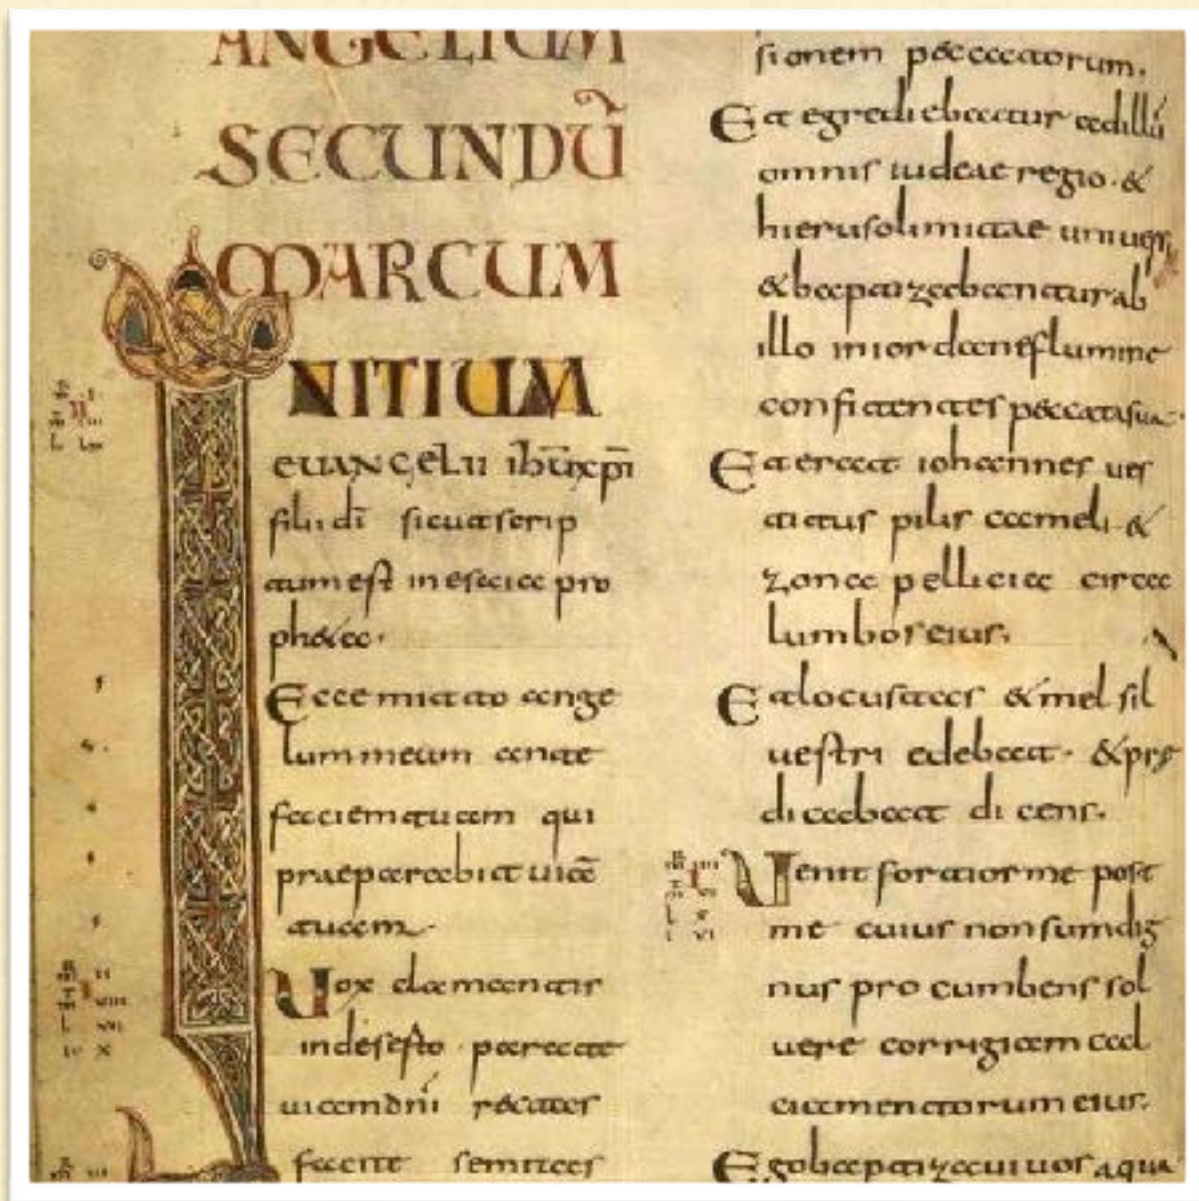 ANGELIUM
SECUNDŪ
MARCUM
INITIUM
euangelii ihū xpī
filii dī sicut scrip
tum est in esaia pro
ph&a.
Ecce mitto ange
lum meum ante
faciem tuam qui
praeparabit uiā
tuam.
Uox clamantis
in deserto parate
uiam dnī r&tas
facite semitas
sionem peccatorum.
Et egrediebatur ad illū
omnis iudeae regio · &
hierusolimitae
& baptizabantur ab
illo in iordane flumine
confitentes peccata sua.
Et erat iohannes ues
titus pilis cameli &
zona pellicia circa
lumbos eius.
Et locustas & mel sil
uestri edebat · & prę
dicabat dicens.
Uenit fortior me post
me cuius non sum dig
nus procumbens sol
uere corrigiam cal
ciamentorum eius.
Ego baptizaui uos aqua